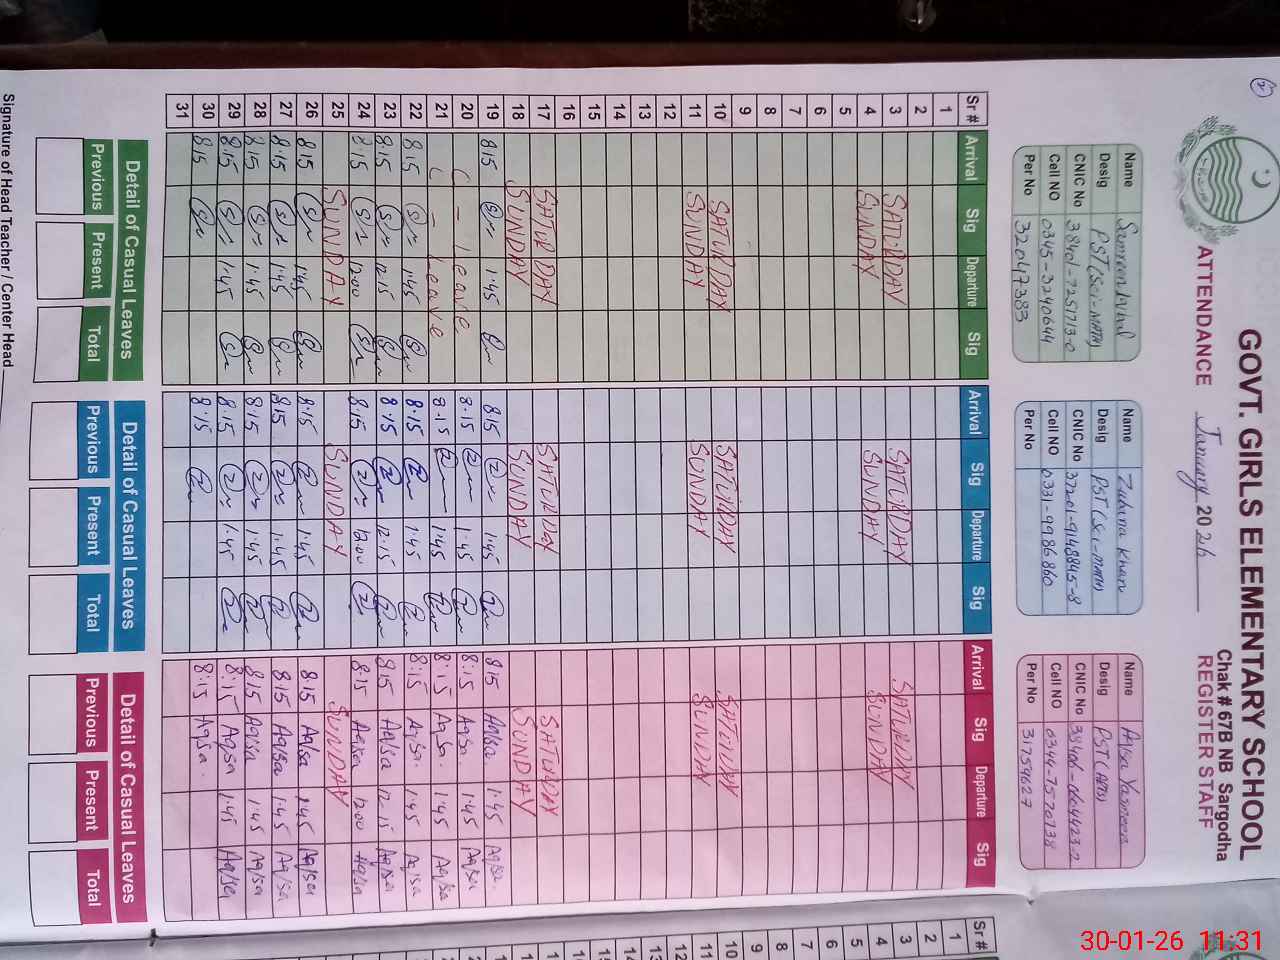 2
GOVT. GIRLS ELEMENTARY SCHOOL
Chak # 67B NB Sargodha
ATTENDANCE January 2026 REGISTER STAFF
Name
Desig PST (Sci-MATH)
CNIC No 38401-7251713-0
Cell NO 0345-3240644
Per No 32047383
Name Khan
Desig PST (Sci-MATH)
CNIC No 37201-9148845-8
Cell NO 0331-9986860
Per No
Name Aqsa Yasmeen
Desig PST (Arts)
CNIC No
Cell NO 0344-7570738
Per No 31759627
Sr # Arrival Sig Departure Sig Arrival Sig Departure Sig Arrival Sig Departure Sig
1
2
3 SATURDAY SATURDAY SATURDAY
4 SUNDAY SUNDAY SUNDAY
5
6
7
8
9
10 SATURDAY SATURDAY SATURDAY
11 SUNDAY SUNDAY SUNDAY
12
13
14
15
16
17 SATURDAY SATURDAY SATURDAY
18 SUNDAY SUNDAY SUNDAY
19 8:15 1:45 8:15 1:45 8:15 Aqsa 1:45 Aqsa
20 C - Leave 8:15 1:45 8:15 Aqsa 1:45 Aqsa
21 C - Leave 8:15 1:45 8:15 Aqsa 1:45 Aqsa
22 8:15 1:45 8:15 1:45 8:15 Aqsa 1:45 Aqsa
23 8:15 12:15 8:15 12:15 8:15 Aqsa 12:15 Aqsa
24 8:15 12:00 8:15 12:00 8:15 Aqsa 12:00 Aqsa
25 SUNDAY SUNDAY SUNDAY
26 8:15 1:45 8:15 1:45 8:15 Aqsa 1:45 Aqsa
27 8:15 1:45 8:15 1:45 8:15 Aqsa 1:45 Aqsa
28 8:15 1:45 8:15 1:45 8:15 Aqsa 1:45 Aqsa
29 8:15 1:45 8:15 1:45 8:15 Aqsa 1:45 Aqsa
30 8:15 8:15 8:15 Aqsa
31
Detail of Casual Leaves Detail of Casual Leaves Detail of Casual Leaves
Previous Present Total Previous Present Total Previous Present Total
Signature of Head Teacher / Center Head
Sr #
1
2
3
4
5
6
7
8
9
10
11
12
13
14
30-01-26 11:31